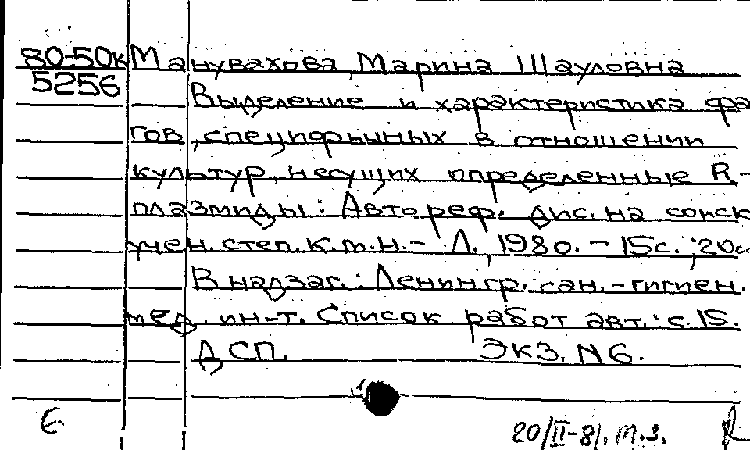 80-50к Манувахова Марина Шауловна
5256
Выделение и характеристика фа
гов, специфичных в отношении
культур, несущих определенные R-
плазмиды: Автореф. дис. на соиск
учен. степ. к.м.н. - Л., 1980. - 15с.; 20с
В надзаг.: Ленингр. сан.-гигиен.
мед. ин-т. Список работ авт.: с. 15.
ДСП. Экз. N6.
Е.
20/II-81. м.з.